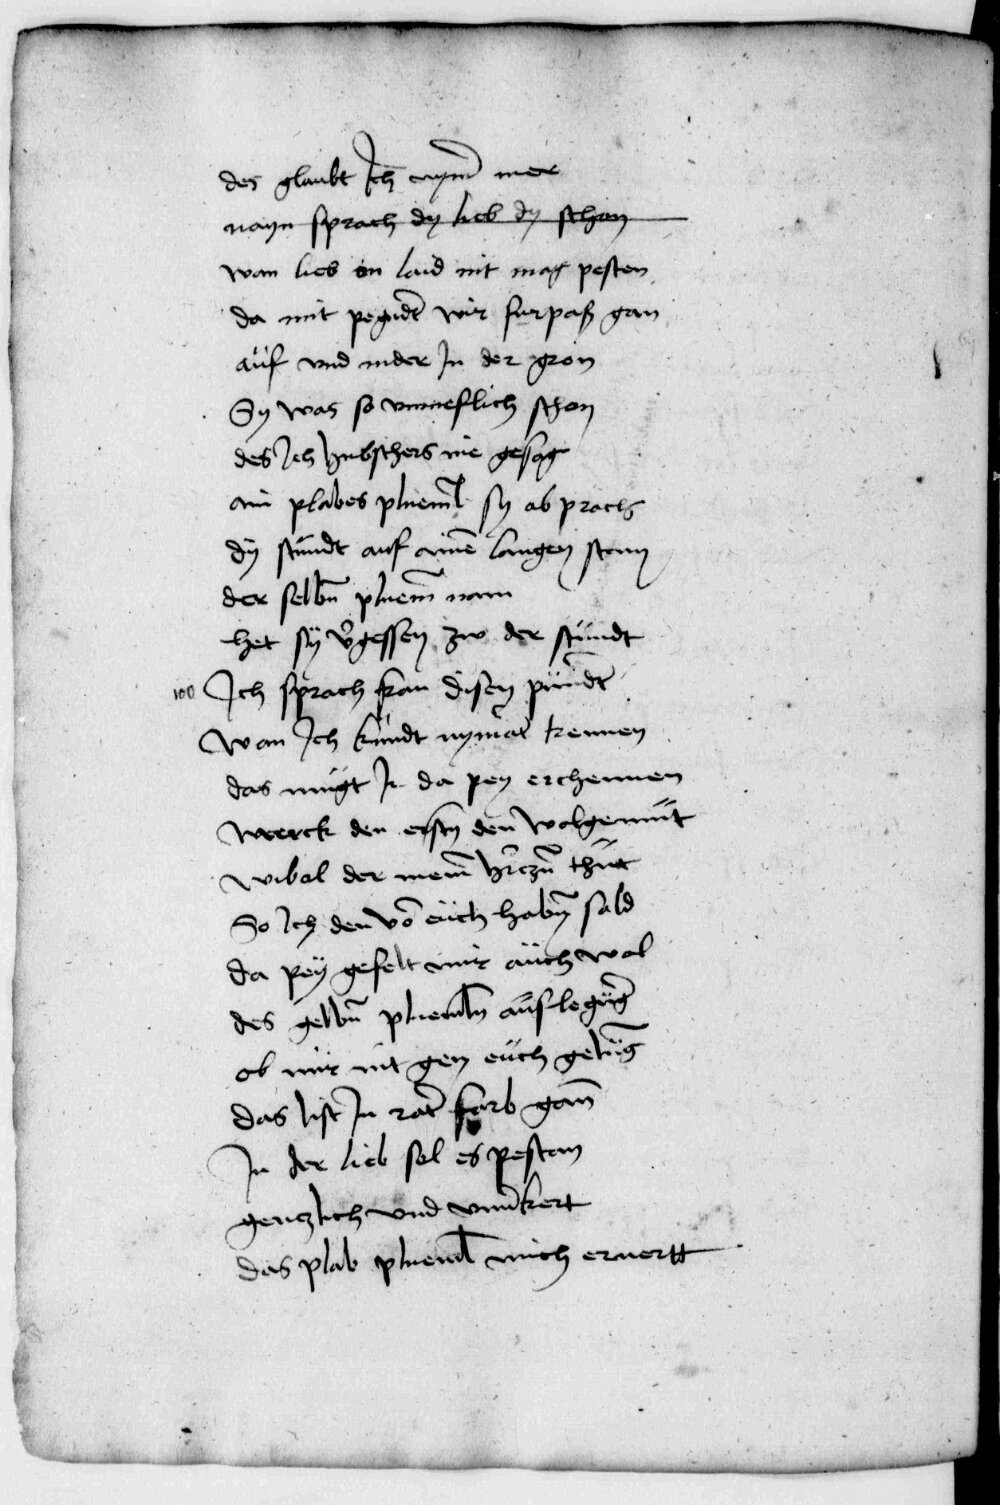 des glaubt Ich nym̄ mer
nayn sprach dy lieb dy schon
wan lieb on laid nit mag pesten
da mit pegudt wir furpaß gan
auf vnd nider In der gron
Sy was so vnmeslich schon
des Ich hubschers nie gesach
ain plabes plueml sy ab prach
dy stundt auf ainē langen stam
der selbn̄ pluem̄ nam
het sy v̄gessen zw der stundt
100 Ich sprach fraw disen pundt
Wan Ich kundt nymāt kennen
das mugt Ir da pey erchennen
Merck den ersten den wolgemut
wibol der meim̄ hrczn̄ thuet
So Ich den vō euch habn̄ sold
da pey gefelt mir auch wol
des gelbn̄ pluemln̄ auslegūg
ob mir nit gen euch geling
das list In rater farb gan̄
In der lieb sol es pestan
genczlich vnd vnuerkert
das plab plueml mich ernertt